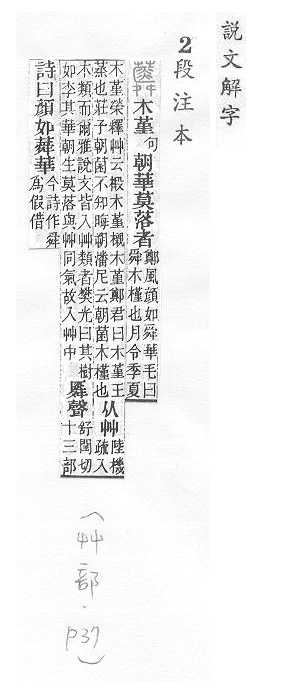 説文解字
2段注本
蕣 木堇句朝華莫落者
鄭風顏如舜華毛曰
舜木槿也月令季夏
木堇榮釋艸云椵木堇櫬木堇鄭君曰木堇王
蒸也莊子朝菌不知晦朔潘尼云朝菌木槿也
从艸
陸機
疏入
木類而爾雅說文皆入艸類者樊光曰其樹
如李其華朝生莫落與艸同氣故入艸中
䑞聲
舒閏切
十三部
詩曰顏如蕣華
今詩作舜
爲假借
(艸部·p37)